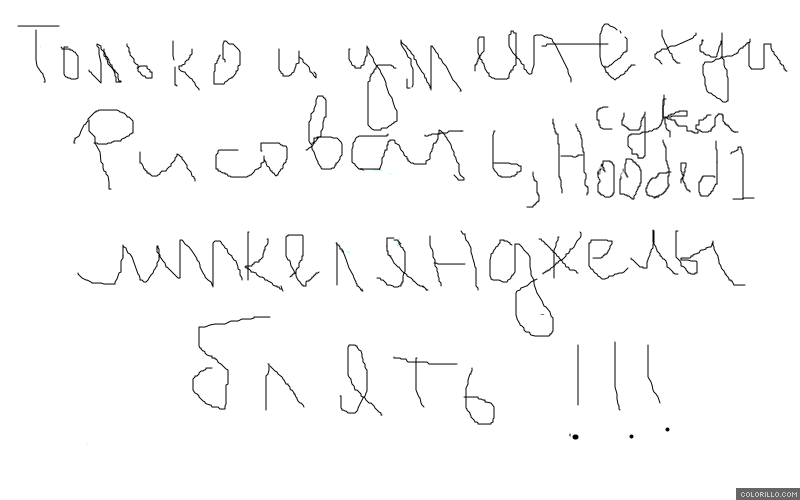 Только и умеете хуи
сука
Рисовать, Hooded1
микеленджелы
блеть !!!
COLORILLO.COM